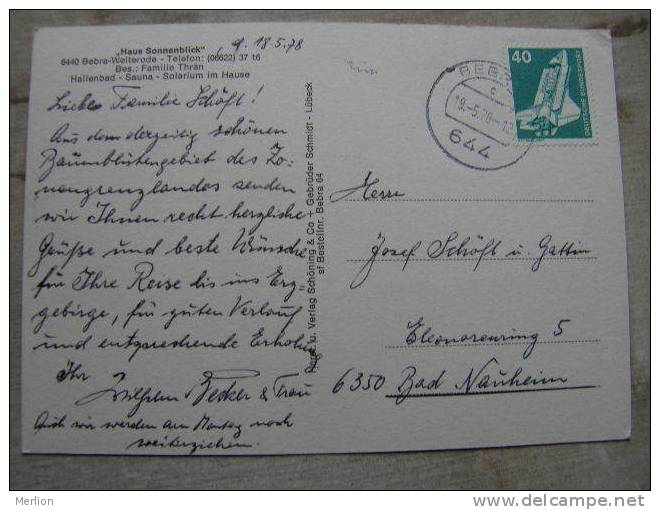 „Haus Sonnenblick"
6440 Bebra-Weiterode - Telefon: (06622) 37 16
Bes.: Familie Thrän
Hallenbad - Sauna - Solarium im Hause
, d. 18.5.78
Liebe Familie Schöft!
Aus dem derzeitig schönen
Baumblütengebiet des Zo-
nengrenzlandes senden
wir Ihnen recht herzliche
Grüße und beste Wünsche
für Ihre Reise bis ins Erz-
gebirge, für guten Verlauf
und entsprechende Erholung
Ihr
Wilhelm Becker & Frau
Auch wir werden am Montag noch
weiterziehen.
Druck u. Verlag Schöning & Co + Gebrüder Schmidt - Lübeck
sf Bestellnr. Bebra 64
BEB
c
19.-5.78-12
644
40
DEUTSCHE BUNDESPOST
Herrn
Josef Schöft u. Gattin
Eleonorenring 5
6350 Bad Nauheim
Merlion
http://www.delcampe.net